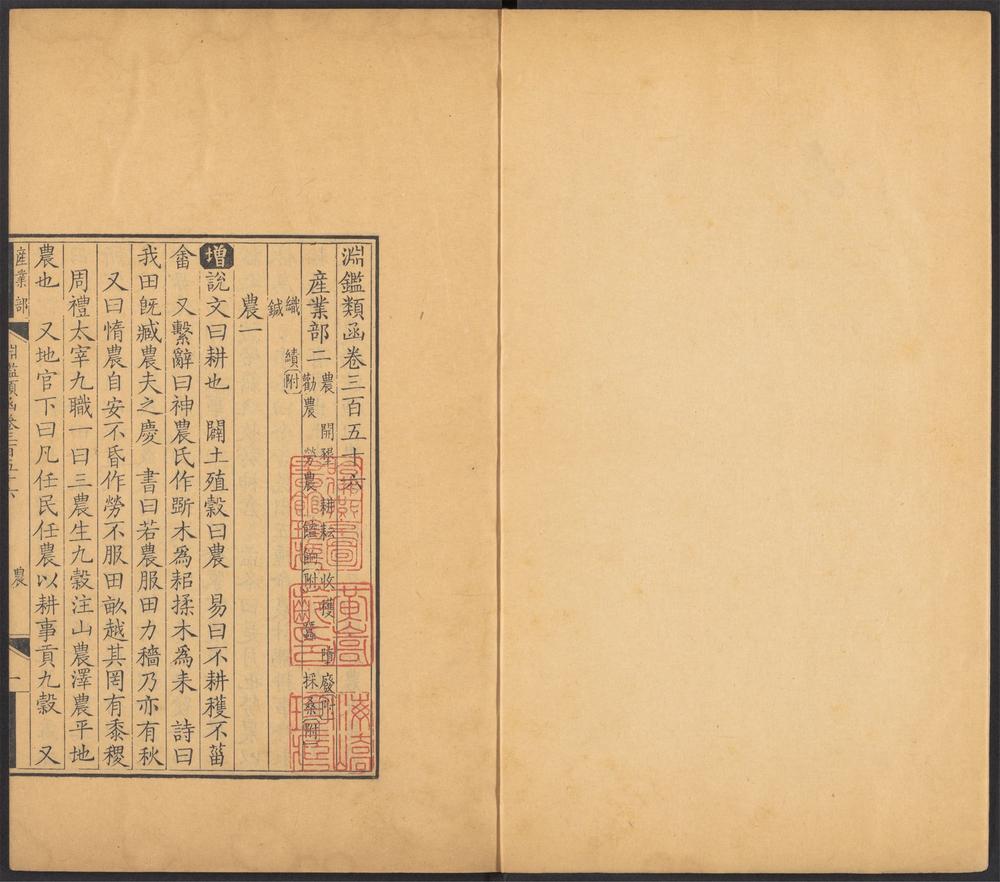 淵鑑類函卷三百五十六
產業部二 農 開墾 耕耘 收穫 墮廢附
勸農 勞農 饁餉附 蠶 採桑附
織 績附
鍼
農一
增說文曰耕也 闢土殖穀曰農 易曰不耕穫不菑
畬 又繫辭曰神農氏作斲木為耜揉木為耒 詩曰
我田旣臧農夫之慶 書曰若農服田力穡乃亦有秋
又曰惰農自安不昏作勞不服田畝越其罔有黍稷
周禮太宰九職一曰三農生九穀注山農澤農平地
農也 又地官下曰凡任民任農以耕事貢九穀 又
產業部
淵鑑類函卷三百五十六
農
一